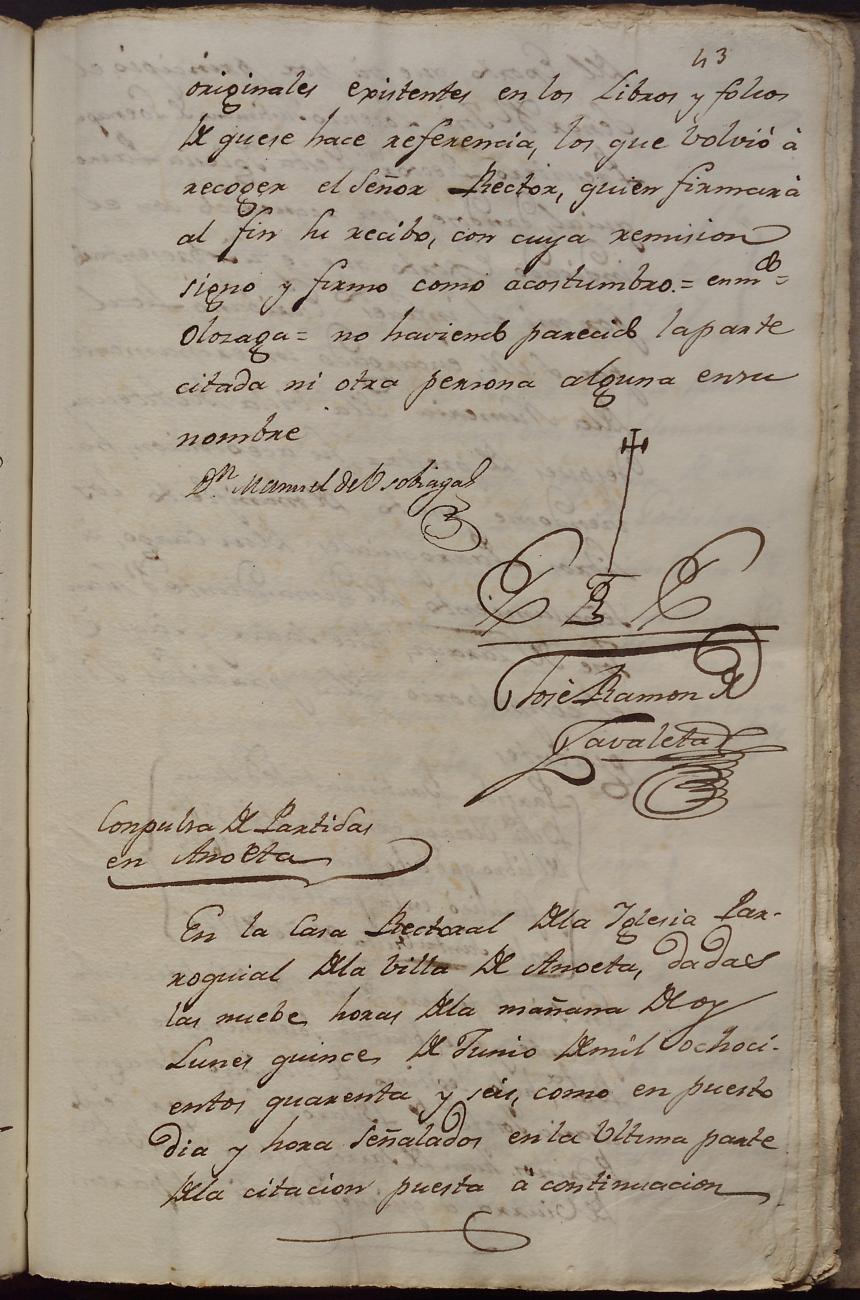 43
originales existentes en los Libros y folios
de quese hace referencia, los que volvió à
recoger el Señor Rector, quien firmarà
al fin su recibo, con cuya remision
signo y firmo como acostumbro.= enmdo=
Olozaga= no haviendo parecido laparte
citada ni otra persona alguna ensu
nombre
Dn Manuel de
José Ramon de
Zavaleta
Conpulsa de Partidas
en Anoeta
En la Casa Rectoral dela Yglesia Par-
roquial dela Villa de Anoeta, dadas
las nuebe horas dela mañana de oy
Lunes quince de Junio demil ochoci-
entos quarenta y seis, como en puesto
dia y hora señalados en la Ultima parte
dela citacion puesta à continuacion